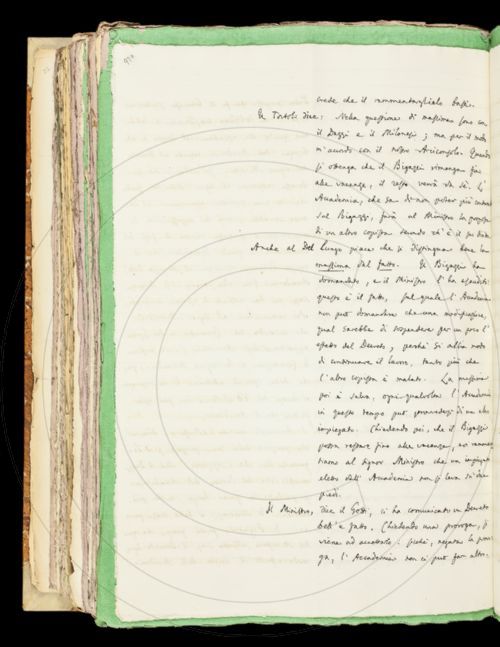 crede che il rammentarglielo basti.
Il Tortoli dice: Nella questione di massima sono con
il Dazzi e il Milanesi; ma per il modo
m'accordo con il nostro Arciconsolo. Quando
si ottenga che il Bigazzi rimanga fino
alle vacanze, il resto verrà da sé. L'
Accademia, che sa di non poter più contare
sul Bigazzi, farà al Ministro la proposta
di un altro copista secondo ch'è il suo
Anche al Del Lungo piace che si distingua bene la
massima dal fatto. Il Bigazzi ha
domandato, e il Ministro l'ha esaudito:
questo è il fatto, sul quale l'Accademia
non può domandare che una modificazione,
qual sarebbe di sospendere per un poco l'
effetto del Decreto, perché si abbia modo
di continuare il lavoro, tanto più che
l'altro copista è malato. La massima
poi è salva, ogni qualvolta l'Accademia
in questo tempo può provvedersi di un altro
impiegato. Chiedendo poi, che il Bigazzi
possa restare fino alle vacanze,
al Signor Ministro che un impiegato
eletto dall'Accademia non si leva su due
piedi.
Il Ministro, dice il Gotti, ci ha comunicato un Decreto
bell'e fatto. Chiedendo una proroga, si
viene ad accettarlo: poiché, negata la proro
ga, l'Accademia non ci può far altro.